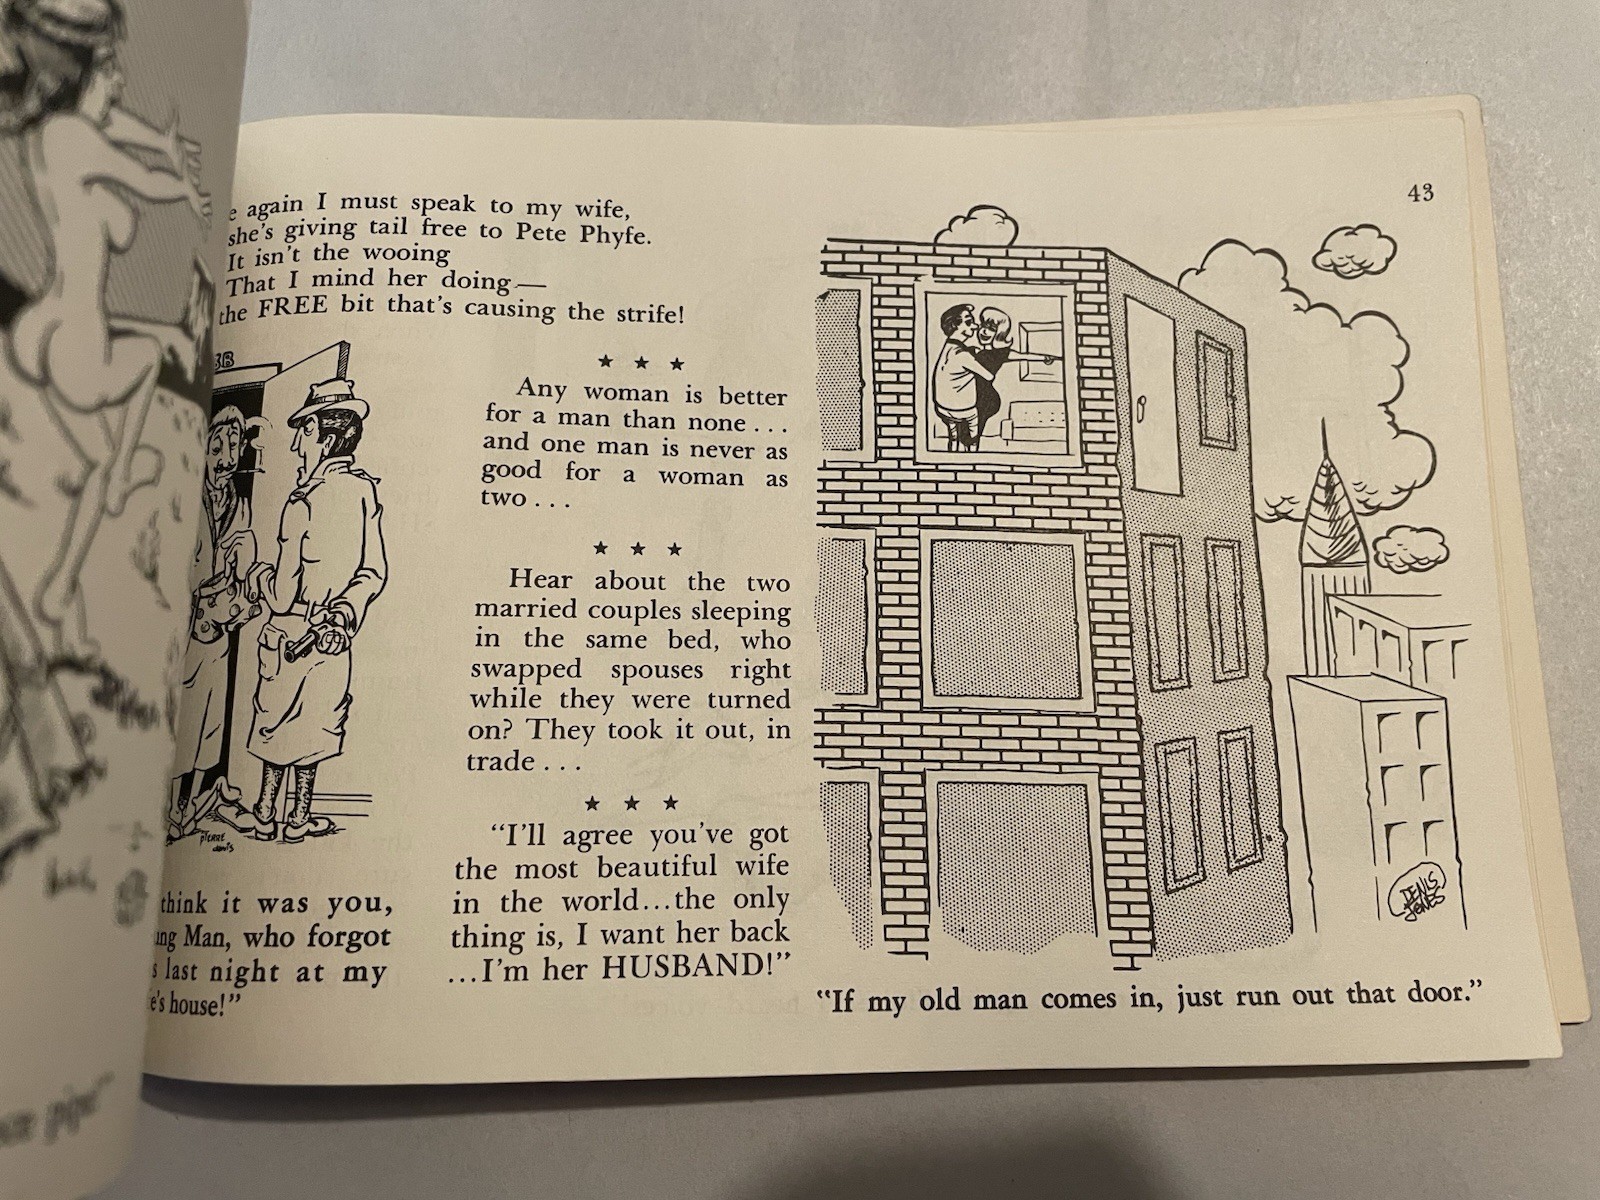 43
again I must speak to my wife,
she's giving tail free to Pete Phyfe.
It isn't the wooing
That I mind her doing—
the FREE bit that's causing the strife!
3B
PIERRE
DAVIS
think it was you,
Man, who forgot
last night at my
house!”
★ ★ ★
Any woman is better
for a man than none . . .
and one man is never as
good for a woman as
two . . .
★ ★ ★
Hear about the two
married couples sleeping
in the same bed, who
swapped spouses right
while they were turned
on? They took it out, in
trade . . .
★ ★ ★
“I'll agree you've got
the most beautiful wife
in the world...the only
thing is, I want her back
...I'm her HUSBAND!”
DENIS
JONES
“If my old man comes in, just run out that door.”